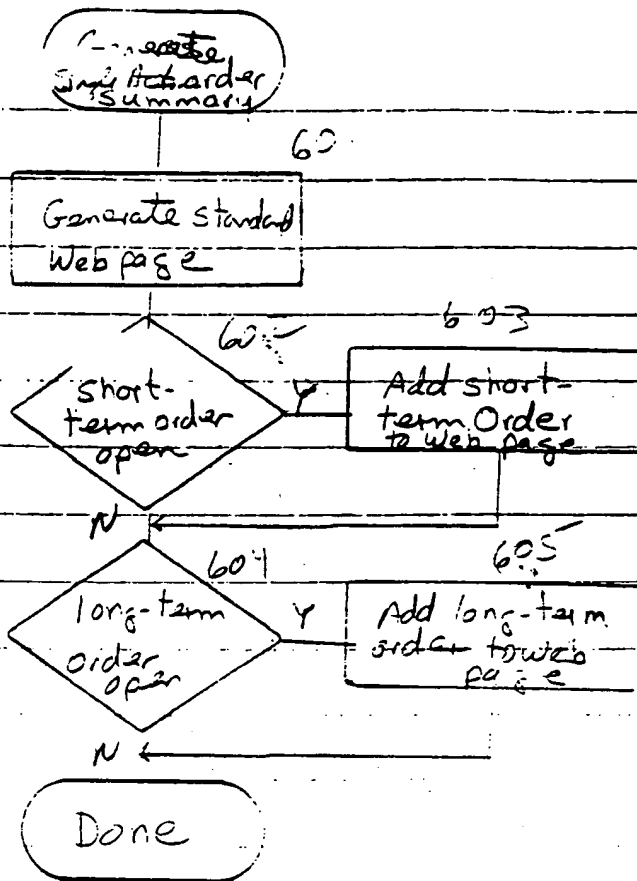 Generate
Single Action order
Summary
60
Generate standard
Web page
60
603
short-
term order
open
Y
Add short-
term Order
to Web page
N
604
605
long-term
order
open
Y
Add long-term
order to web
page
N
Done